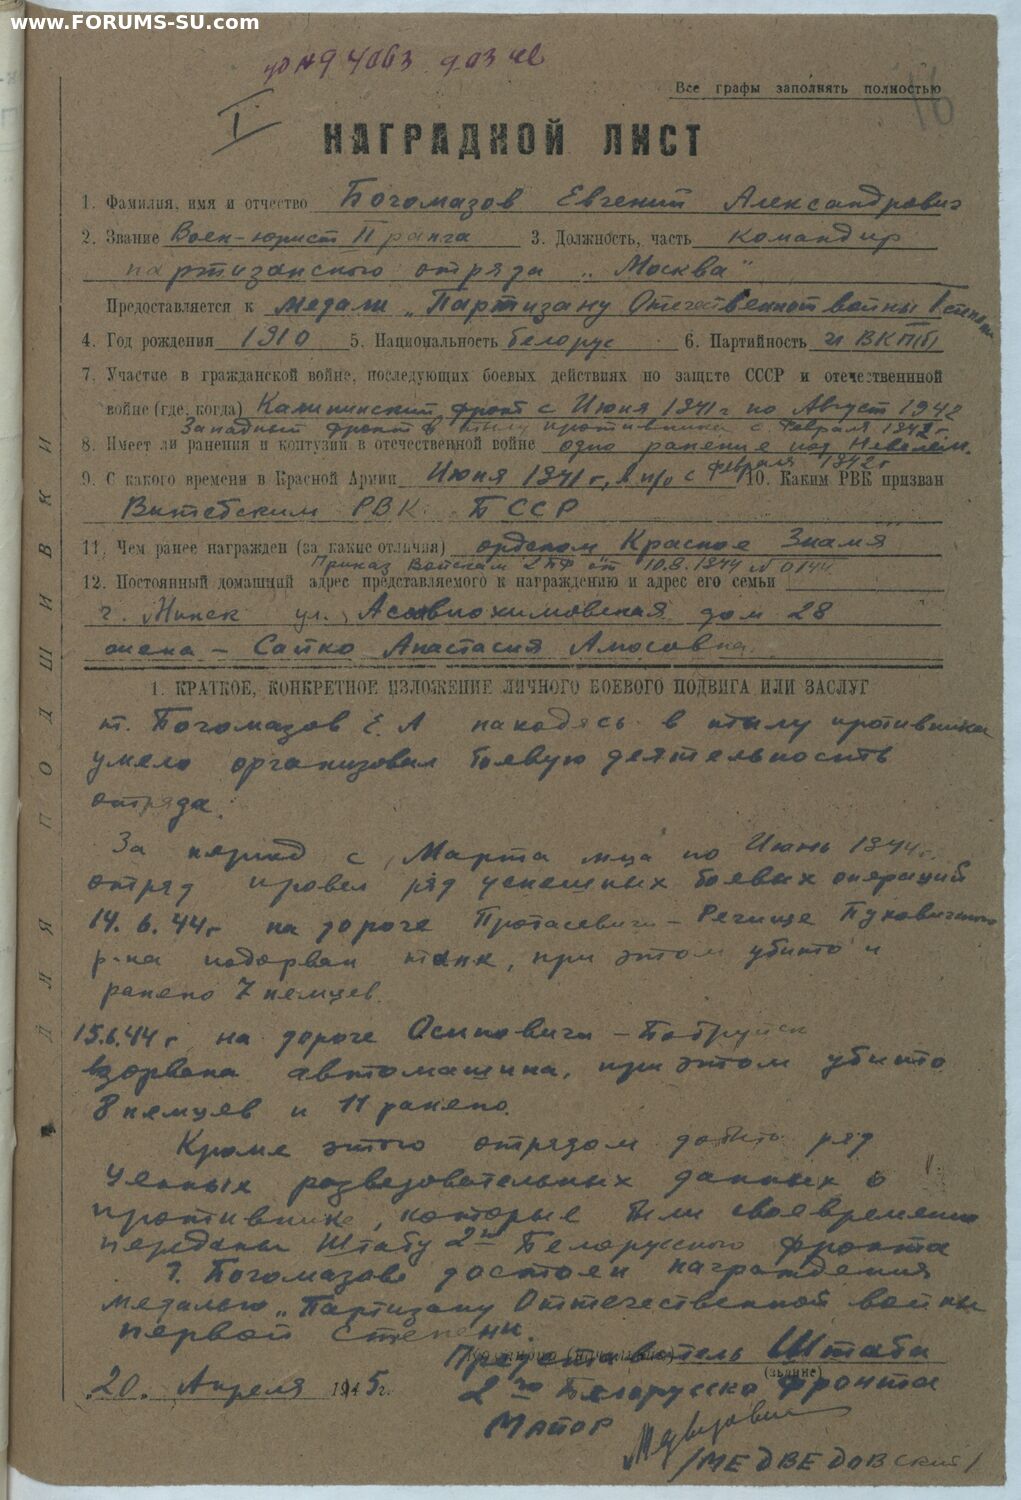 www.FORUMS-SU.com
Все графы заполнять полностью
16
I
НАГРАДНОЙ ЛИСТ
1. Фамилия, имя и отчество Богомазов Евгений Александрович
2. Звание Воен-юрист II ранга 3. Должность, часть командир
партизанского отряда „Москва"
Предоставляется к медали „Партизану Отечественной войны I степени
4. Год рождения 1910 5. Национальность белорус 6. Партийность чл ВКП(б)
7. Участие в гражданской войне, последующих боевых действиях по защите СССР и отечественной
войне (где, когда) Калининский фронт с Июня 1941 г по Август 1942
Западный фронт в тылу противника с февраля 1942 г.
8. Имеет ли ранения и контузии в отечественной войне одно ранение под Невелем.
9. С какого времени в Красной Армии Июня 1941 г, в п/о с февраля 1942 г 10. Каким РВК призван
Витебским РВК БССР
11. Чем ранее награжден (за какие отличия) орденом Красное Знамя
Приказ Войскам 2 ПФ от 10.8.1944 N 0144
12. Постоянный домашний адрес представляемого к награждению и адрес его семьи
г. Минск ул. Асавиохимовская дом 28
жена – Сайко Анастасия Амосовна
1. КРАТКОЕ, КОНКРЕТНОЕ ИЗЛОЖЕНИЕ ЛИЧНОГО БОЕВОГО ПОДВИГА ИЛИ ЗАСЛУГ
т. Богомазов Е. А находясь в тылу противника
умело организовал боевую деятельность
отряда.
За период с Марта м-ца по Июнь 1944 г.
отряд провел ряд успешных боевых операций
14.6.44 г на дороге Протасевичи – Речище Пуховичского
р-на подорван танк, при этом убито и
ранено 7 немцев.
15.6.44 г на дороге Осиповичи – Бобруйск
взорвана автомашина, при этом убито
8 немцев и 11 ранено.
Кроме этого отрядом добыто ряд
ценных разведовательных данных о
противнике, которые были своевременно
переданы Штабу 2го Белорусского фронта
Т. Богомазов достоен награждения
медалью „Партизану Оттечественной войны
первой степени.
Представитель Штаба
(звание)
20. Апреля 1945 г. 2го Белорусско фронта
Майор
/МЕДВЕДОВский/
ДЛЯ ПОДШИВКИ